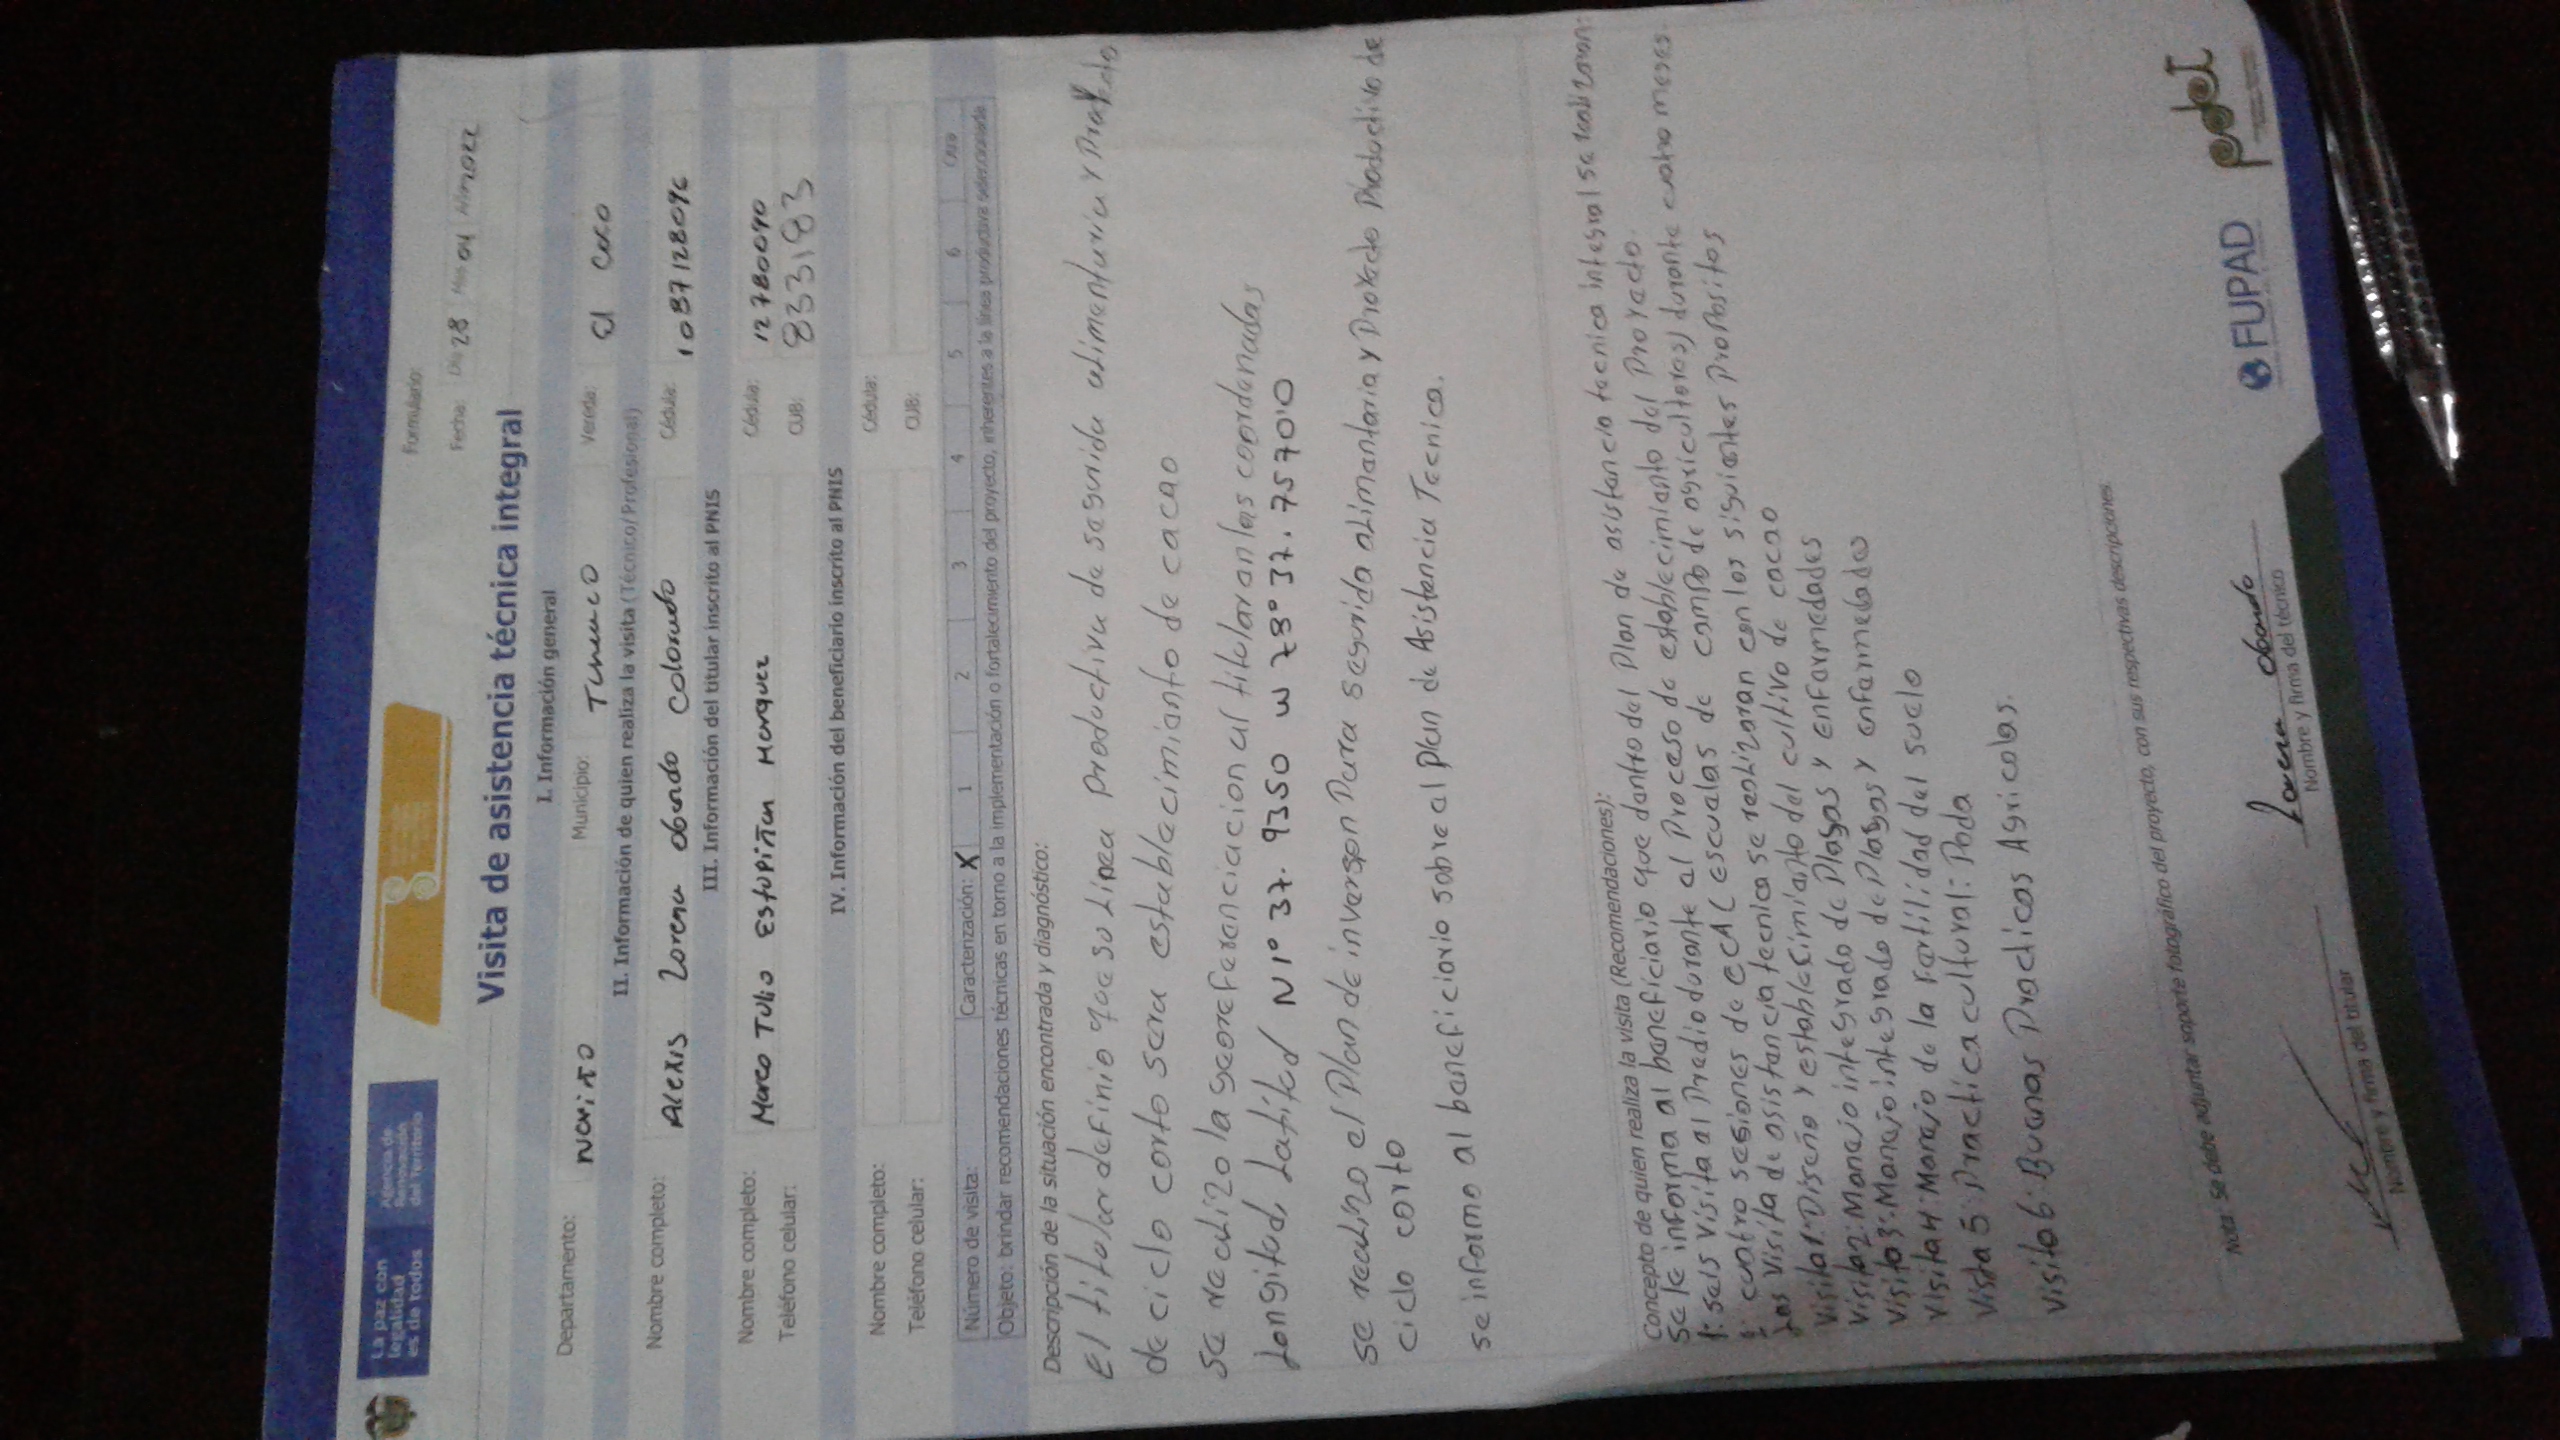 La paz con
legalidad
es de todos
Agencia de
Renovación
del Territorio
Formulario:
Fecha: Día 28 Mes 04 Año 2022
Visita de asistencia técnica integral
I. Información general
Departamento: Nariño Municipio: Tumaco Vereda: El Coco
II. Información de quien realiza la visita (Técnico/Profesional)
Nombre completo: Alexis Lorena Obando Colorado Cédula: 1087128096
III. Información del titular inscrito al PNIS
Nombre completo: Marco Tulio Estupiñan Marquez Cédula: 12780090
Teléfono celular: CUB: 8333183
IV. Información del beneficiario inscrito al PNIS
Nombre completo: Cédula:
Teléfono celular: CUB:
Número de visita: Caracterización: X 1 2 3 4 5 6 Otra
Objeto: brindar recomendaciones técnicas en torno a la implementación o fortalecimiento del proyecto, inherentes a la línea productiva seleccionada
Descripción de la situación encontrada y diagnóstico:
El titular definio que su linea productiva de segurida alimentaria y
de ciclo corto sera establecimiento de cacao
se realizo la georeferenciacion al titular en las coordenadas
Longitud, Latitud N 1° 37. 9350 W 78° 37. 7570'0
se realizo el Plan de inverson Para segurida alimentaria y Proyecto Productivo de
ciclo corto
se informo al beneficiario sobre al plan de Asistencia Tecnica.
Concepto de quien realiza la visita (Recomendaciones):
Se le informa al beneficiario que dentro del Plan de asistencia tecnica integral se realizaran:
1: seis visita al Predio durante el Proceso de establecimiento del Proyecto.
cuatro sesiones de ECA (escuelas de campo de agricultores) durante cuatro meses.
Las visita de asistencia tecnica se realizaran con los siguientes Propositos
Visita 1: Diseño y establecimiento del cultivo de cacao
Visita 2: Manejo integrado de Plagas y enfermedades
Visita 3: Manejo integrado de Plagas y enfermedades
Visita 4: Manejo de la fertilidad del suelo
Visita 5: Practica cultural: Poda
Visita 6: Buenas Practicas Agricolas.
Nota: Se debe adjuntar soporte fotográfico del proyecto, con sus respectivas descripciones.
Lorena Obando
Nombre y firma del titular Nombre y firma del técnico
FUPAD
pdet